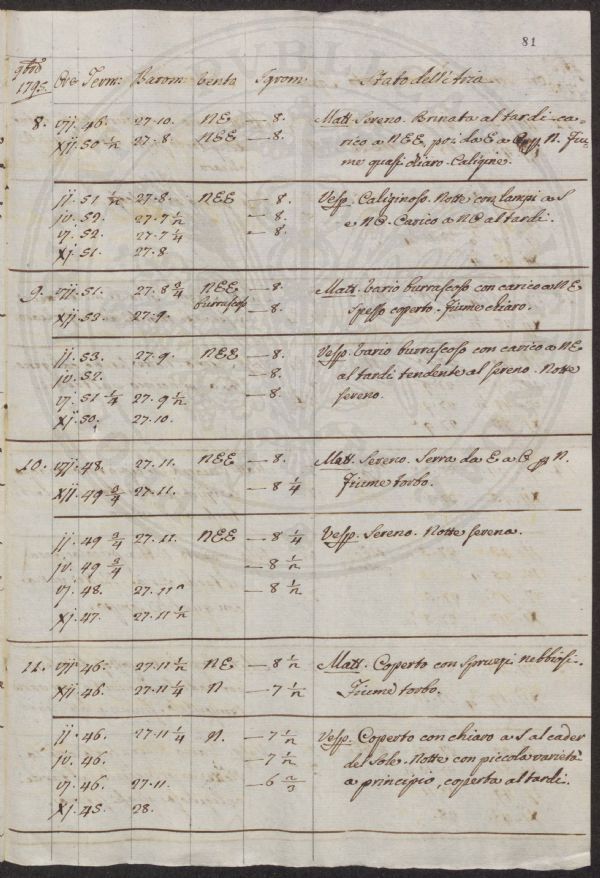 81
9bre 1795. Ore Term: Barom: vento Igrom: Stato dell'Aria
8. vij. 46. 27.10. NE — 8. Matt. Sereno. Brinata al tardi ca-
xij. 50 ½ 27.8. NEE — 8. rico a NEE, poi da E a N. Fiu-
me quasi chiaro. Caligine.
ij. 51 ½ 27.8. NEE — 8. Vesp. Caliginoso. Notte con lampi a S
iv. 52. 27.7 ½ — 8. e NO. Carico a NO al tardi.
vj. 52. 27.7 ¼ — 8.
xj. 51. 27.8
9. vij. 51. 27.8 ¾ NEE — 8. Matt. Vario burrascoso con carico a NE
burrascoso
xij. 52. 27.9. — 8. Spesso coperto. Fiume chiaro.
ij. 53. 27.9. NEE — 8. Vesp. Vario burrascoso con carico a NE
iv. 52. — 8. al tardi tendente al sereno. Notte
vj. 51 ¼ 27.9 ½ — 8. serena.
xj. 50. 27.10.
10. vij. 48. 27.11. NEE — 8. Matt. Sereno. Serra da E a O per N.
xij. 49 ¾ 27.11. — 8 ¼ Fiume torbo.
ij. 49 ¾ 27.11. NEE — 8 ¼ Vesp. Sereno. Notte serena.
iv. 49 ¾ — 8 ½
vj. 48. 27.11 — 8 ½
xj. 47. 27.11 ½
11. vij. 46. 27.11 ½ NE — 8 ½ Matt. Coperto con spruzzi nebbiosi.
xij. 46. 27.11 ¼ N — 7 ½ Fiume torbo.
ij. 46. 27.11 ¼ N. — 7 ½ Vesp. Coperto con chiaro a S al cader
iv. 46. — 7 ½ del Sole. Notte con piccola varietà
vj. 46. 27.11. — 6 ⅔ a principio, coperta al tardi.
xj. 45. 28.